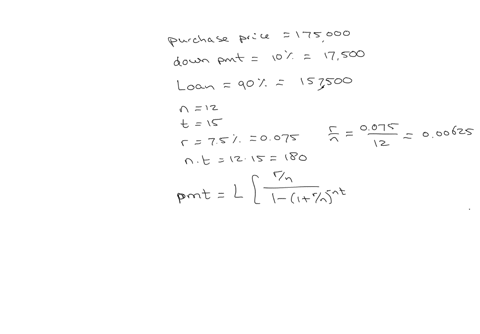 purchase price = 175,000
down pmt = 10% = 17,500
Loan = 90% = 157,500
n = 12
t = 15
r = 7.5% = 0.075 r/n = 0.075/12 = 0.00625
n.t = 12.15 = 180
pmt = L [ r/n / 1-(1+r/n)^-nt